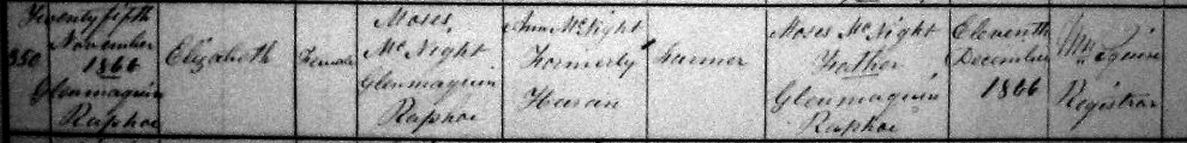 350
Twenty fifth
November
1866
Glenmaquin
Raphoe
Elizabeth
Female
Moses
McNight
Glenmaquin
Raphoe
Ann McNight
Formerly
Haran
Farmer
Moses McNight
Father
Glenmaquin
Raphoe
Eleventh
December
1866
Registrar